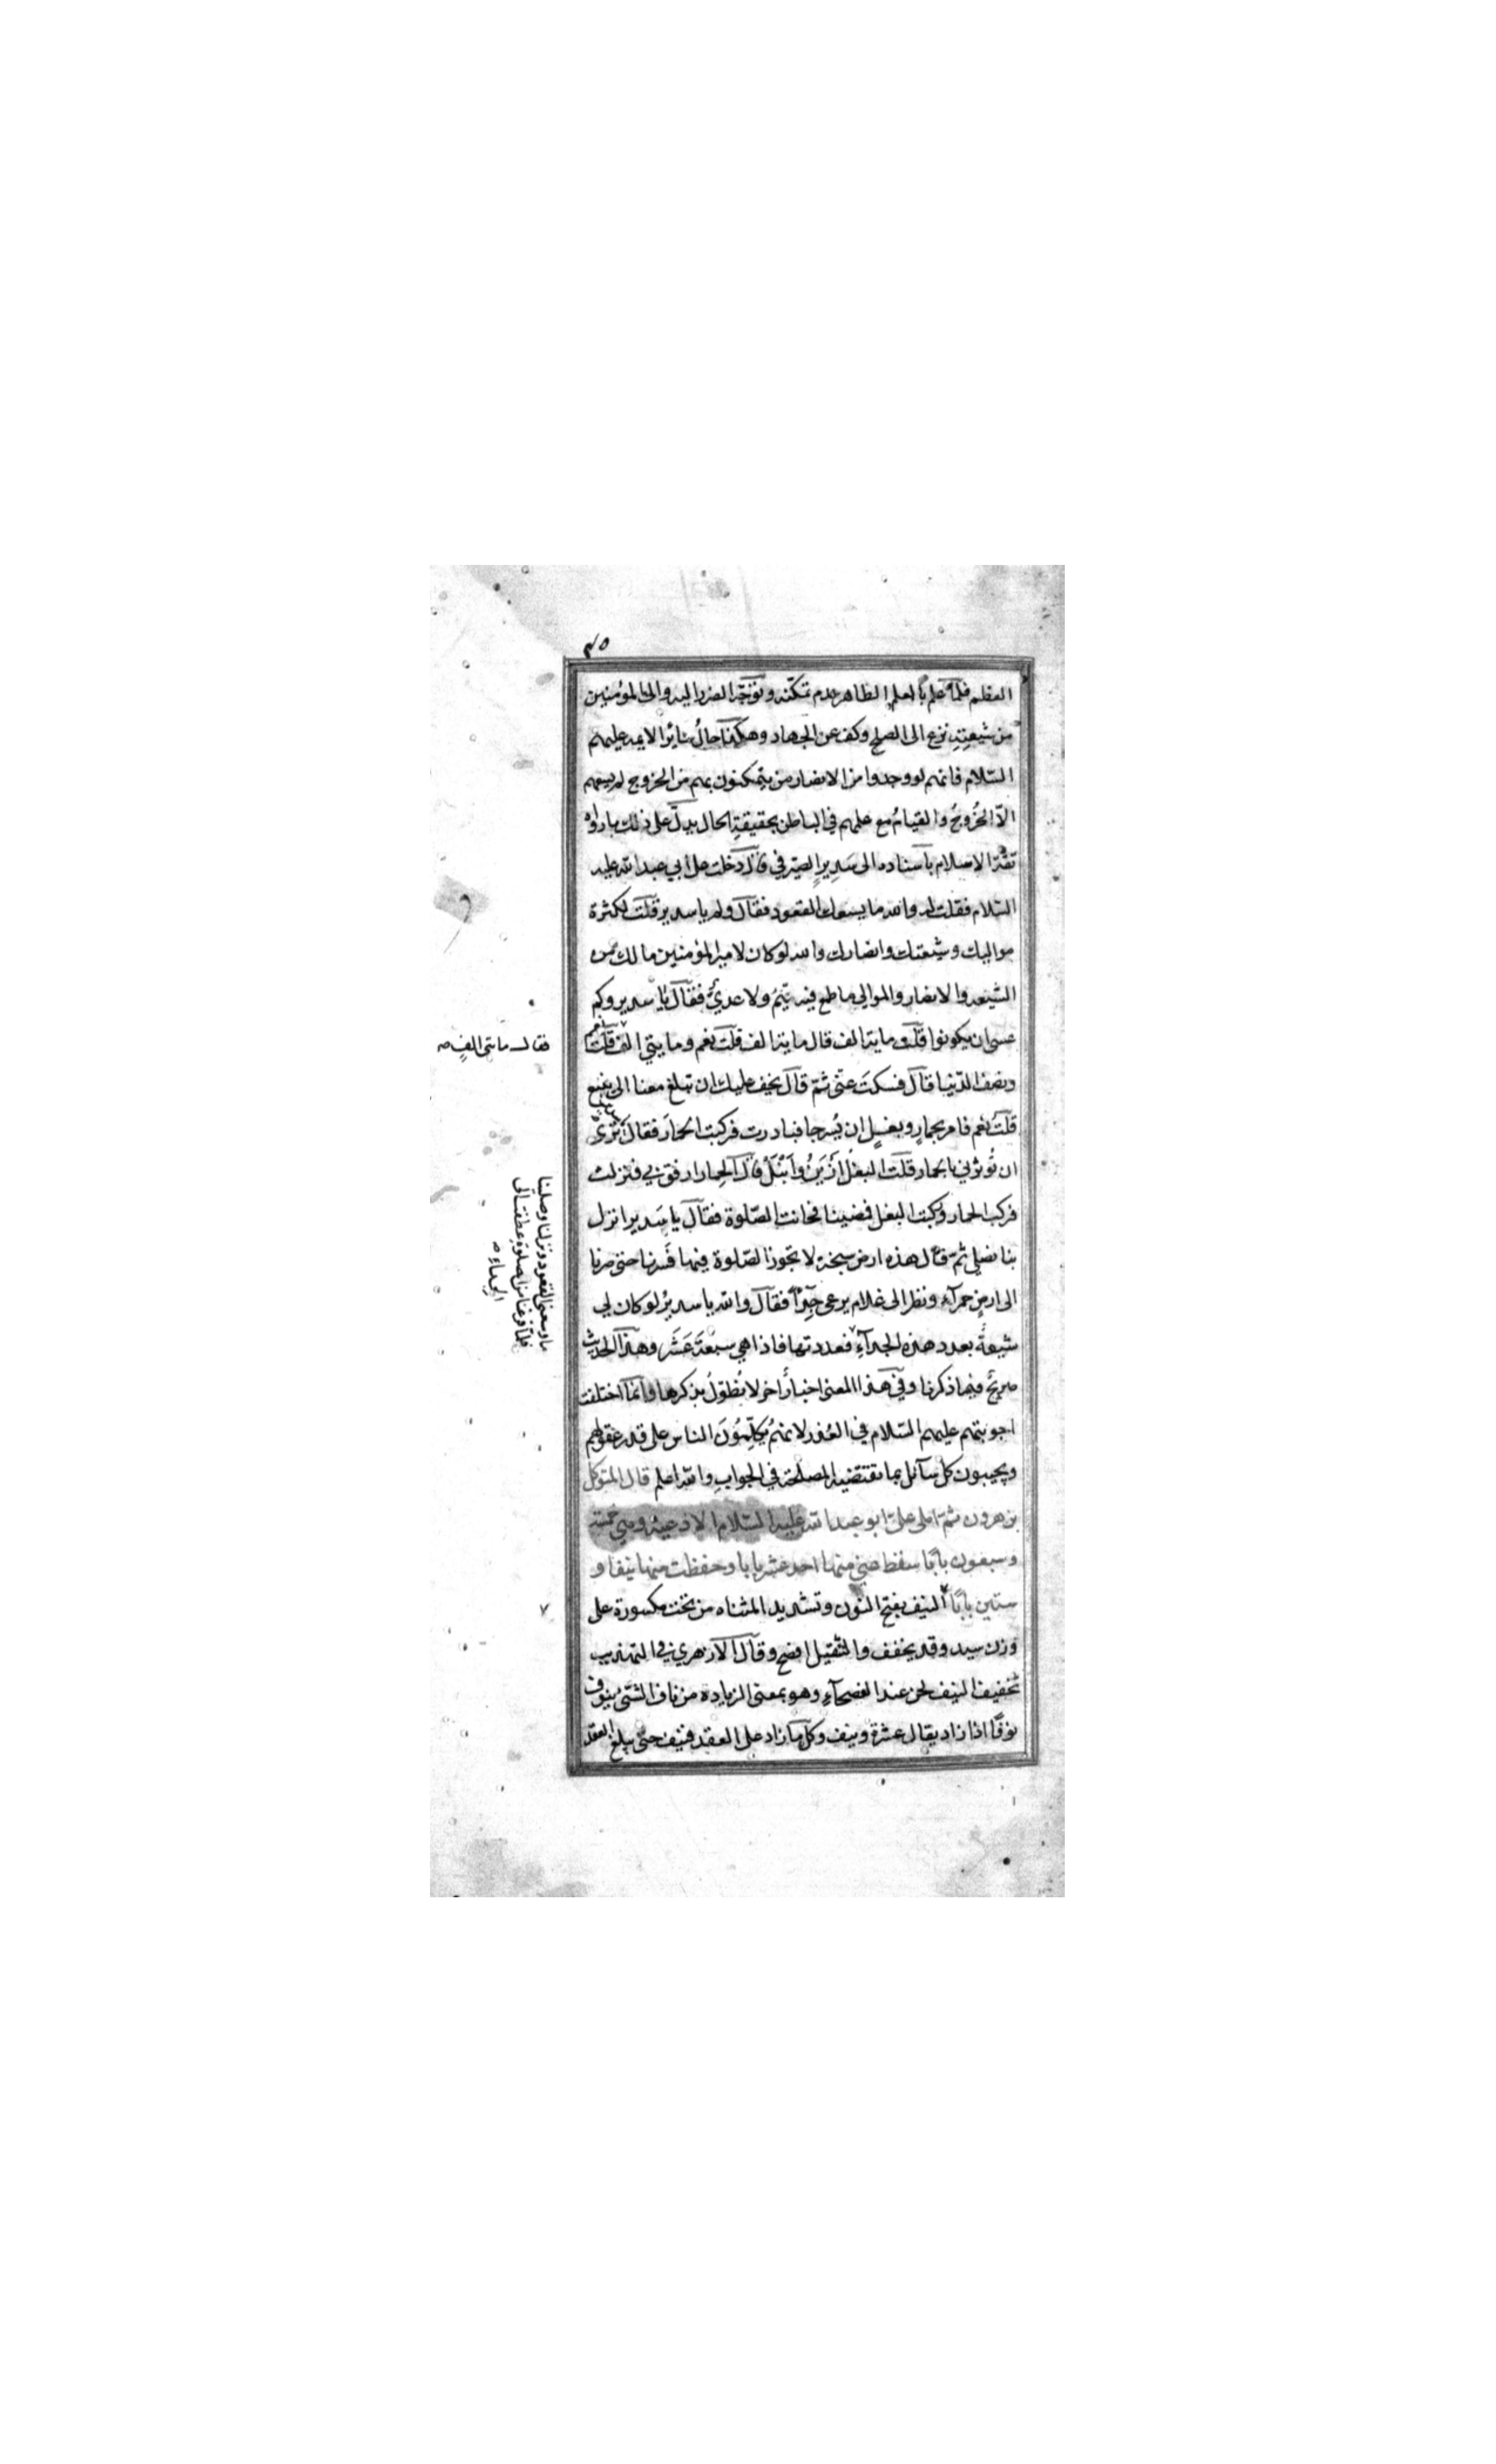 ٤٥
العظم فلما علم بالعلم الظاهر عدم تمكنه وتوجه الضرر اليه والى المؤمنين
من شيعته نزع الى الصلح وكف عن الجهاد وهكذا حال سائر الائمه عليهم
السّلام فانهم لو وجدوا من الانصار من يتمكنون بهم من الخروج لم يسعهم
الّا الخُرُوجُ والقيامُ مع علمهم في الباطن بحقيقةِ الحال يدلّ على ذلك ما رواه
ثقة الاسلام باسناده الى سَدِيرٍ الصيرفي قال دخلت على ابي عبد الله عليه
السّلام فقلت له والله ما يسعك القعود فقال ولم يا سدير قلت لكثرة
مواليك وشيعتك وانصارك والله لو كان لامير المؤمنين مالك من
الشيعه والانصار والموالي ما طمع فيه تيمُ ولا عديُّ فقال يا سدير وكم
عسى ان يكونوا قلت مايه الف قال مايه الف قلت نعم ومايتي الف قلت نعم
ونصف الدّنيا قال فسكتَ عنّي ثمّ قال يخف عليك ان تبلغ معنا الى ينبع
قلت نعم فامر بحمارٍ وبغلٍ ان يُسرجا فبادرت فركبت الحمارَ فقال يا سدير ترى
ان تُوثرني بالحمار قلت البغلُ اَزْيَنُ وَاَنْبَلُ قال الحمار ارفق بي فنزلت
فركب الحمار وركبت البغل فمضينا فحانت الصّلوة فقال يا سَدير انزل
بنا نصلي ثمّ قال هذه ارض سبخة لا تجوز الصّلوة فيها فَسِرنا حتى صرنا
الى ارضٍ حمرآء ونظر الى غلام يرعى جِدَاءً فقال والله يا سديرُ لو كان لي
شيعةٌ بعدد هذه الجدآءِ فعددتها فاذا هي سبعَةَ عَشَر وهذا الحديث
صريحٌ فيما ذكرنا وفي هذا المعنى اخبارٌ اخر لا نُطوّلُ بذكرها وانما اختلفت
اجوبتهم عليهم السّلام في العُذر لانهم يُكلِّمُونَ الناس على قدر عقولهم
ويجيبون كل سآئل بما تقتضيه المصلحة في الجوابِ والله اعلم قال المتوكل
بن هرون ثمّ املى علىّ ابو عبد الله عليه السّلام الادعيه وهي خمسة
وسبعون باباً سقط عني منها احد عشر بابا وحفظت منها نيفا و
ستين باباً النيف بفتح النّون وتشديد المثناه من تحت مكسورة على
وزن سيد وقد يخفف والتثقيل افصح وقال الازهري في التهذيب
تخفيف النيف لحن عند الفصحآءِ وهو بمعنى الزياده من ناف الشّىُ ينوف
نوفًا اذا زاد يقال عشرة ونيف وكل ما زاد على العقد فنيف حتى يبلغ العقد
فقال مائتي الفٍ صه
ما وسعني القعود ونزلنا وصلينا
فلمّا فرغنا من الصلوة عطفت الى
الجداء صه